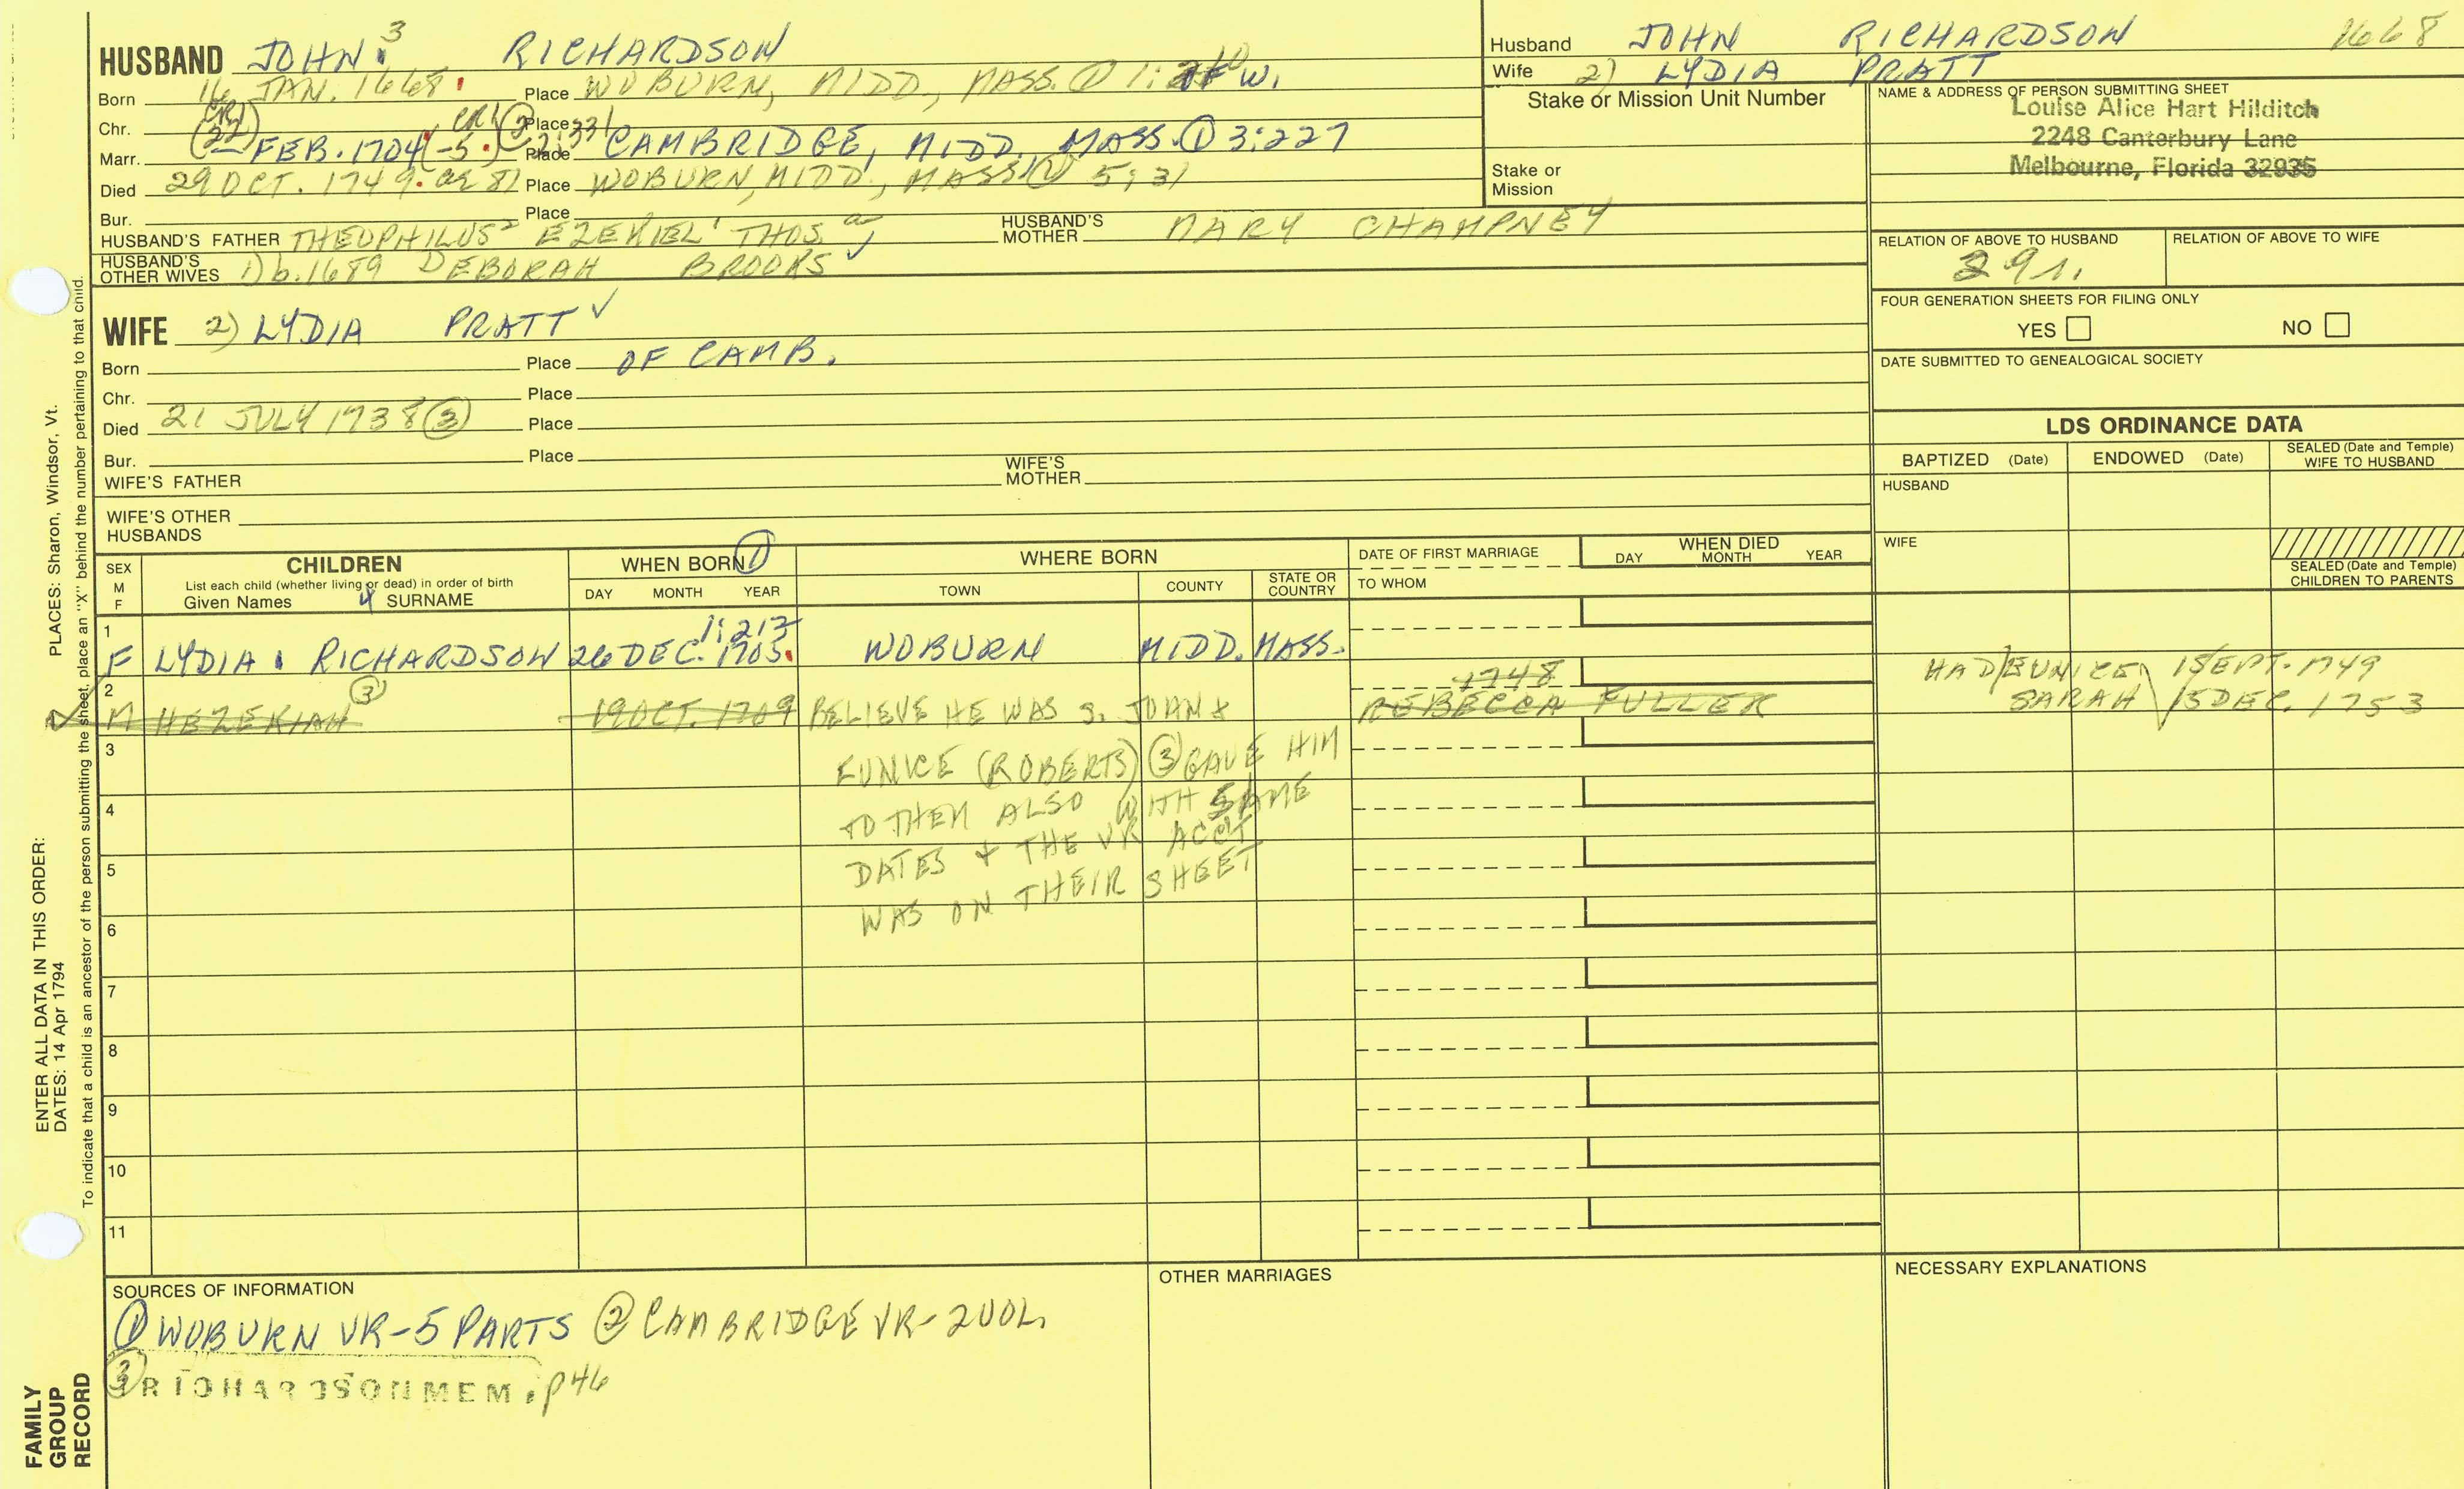 HUSBAND JOHN 3 RICHARDSON
Born 16 JAN. 1668. Place WOBURN, MIDD., MASS. ① 1: W.
Chr. Place
Marr. (22) FEB. 1704(-5.) CR1 ② 2:331 Place CAMBRIDGE, MIDD. MASS. ① 3:227
Died 29 OCT. 1749. ae 81 Place WOBURN, MIDD., MASS. ① 5:31
Bur. Place
HUSBAND'S FATHER THEOPHILUS² EZEKIEL¹ THOS. a ✓ HUSBAND'S MOTHER MARY CHAMPNEY
HUSBAND'S OTHER WIVES 1) b.1689 DEBORAH BROOKS ✓
WIFE 2) LYDIA PRATT ✓
Born Place OF CAMB.
Chr. Place
Died 21 JULY 1738 ③ Place
Bur. Place
WIFE'S FATHER WIFE'S MOTHER
WIFE'S OTHER HUSBANDS
Husband JOHN RICHARDSON 1668
Wife 2) LYDIA PRATT
Stake or Mission Unit Number
Stake or Mission
NAME & ADDRESS OF PERSON SUBMITTING SHEET
Louise Alice Hart Hilditch
2248 Canterbury Lane
Melbourne, Florida 32935
RELATION OF ABOVE TO HUSBAND RELATION OF ABOVE TO WIFE
291.
FOUR GENERATION SHEETS FOR FILING ONLY
YES NO
DATE SUBMITTED TO GENEALOGICAL SOCIETY
LDS ORDINANCE DATA
BAPTIZED (Date) ENDOWED (Date) SEALED (Date and Temple) WIFE TO HUSBAND
HUSBAND
WIFE
SEALED (Date and Temple) CHILDREN TO PARENTS
SEX M F CHILDREN WHEN BORN ① WHERE BORN DATE OF FIRST MARRIAGE WHEN DIED
List each child (whether living or dead) in order of birth
Given Names 4 SURNAME DAY MONTH YEAR TOWN COUNTY STATE OR COUNTRY TO WHOM DAY MONTH YEAR
1 1:212
F LYDIA RICHARDSON 26 DEC. 1705. WOBURN MIDD. MASS.
2 ③ 1748 HAD EUNICE 1 SEPT. 1749
M HEZEKIAH 19 OCT. 1709 BELIEVE HE WAS s. JOHN & REBECCA FULLER SARAH 15 DEC. 1753
3 EUNICE (ROBERTS) ③ GAVE HIM
4 TO THEM ALSO WITH SAME
5 DATES & THE VR ACCT
6 WAS ON THEIR SHEET
7
8
9
10
11
SOURCES OF INFORMATION
① WOBURN VR-5 PARTS ② CAMBRIDGE VR-2 VOL.
③ RICHARDSON MEM. p 46
OTHER MARRIAGES
NECESSARY EXPLANATIONS
ENTER ALL DATA IN THIS ORDER:
DATES: 14 Apr 1794
PLACES: Sharon, Windsor, Vt.
To indicate that a child is an ancestor of the person submitting the sheet, place an "X" behind the number pertaining to that child.
FAMILY GROUP RECORD